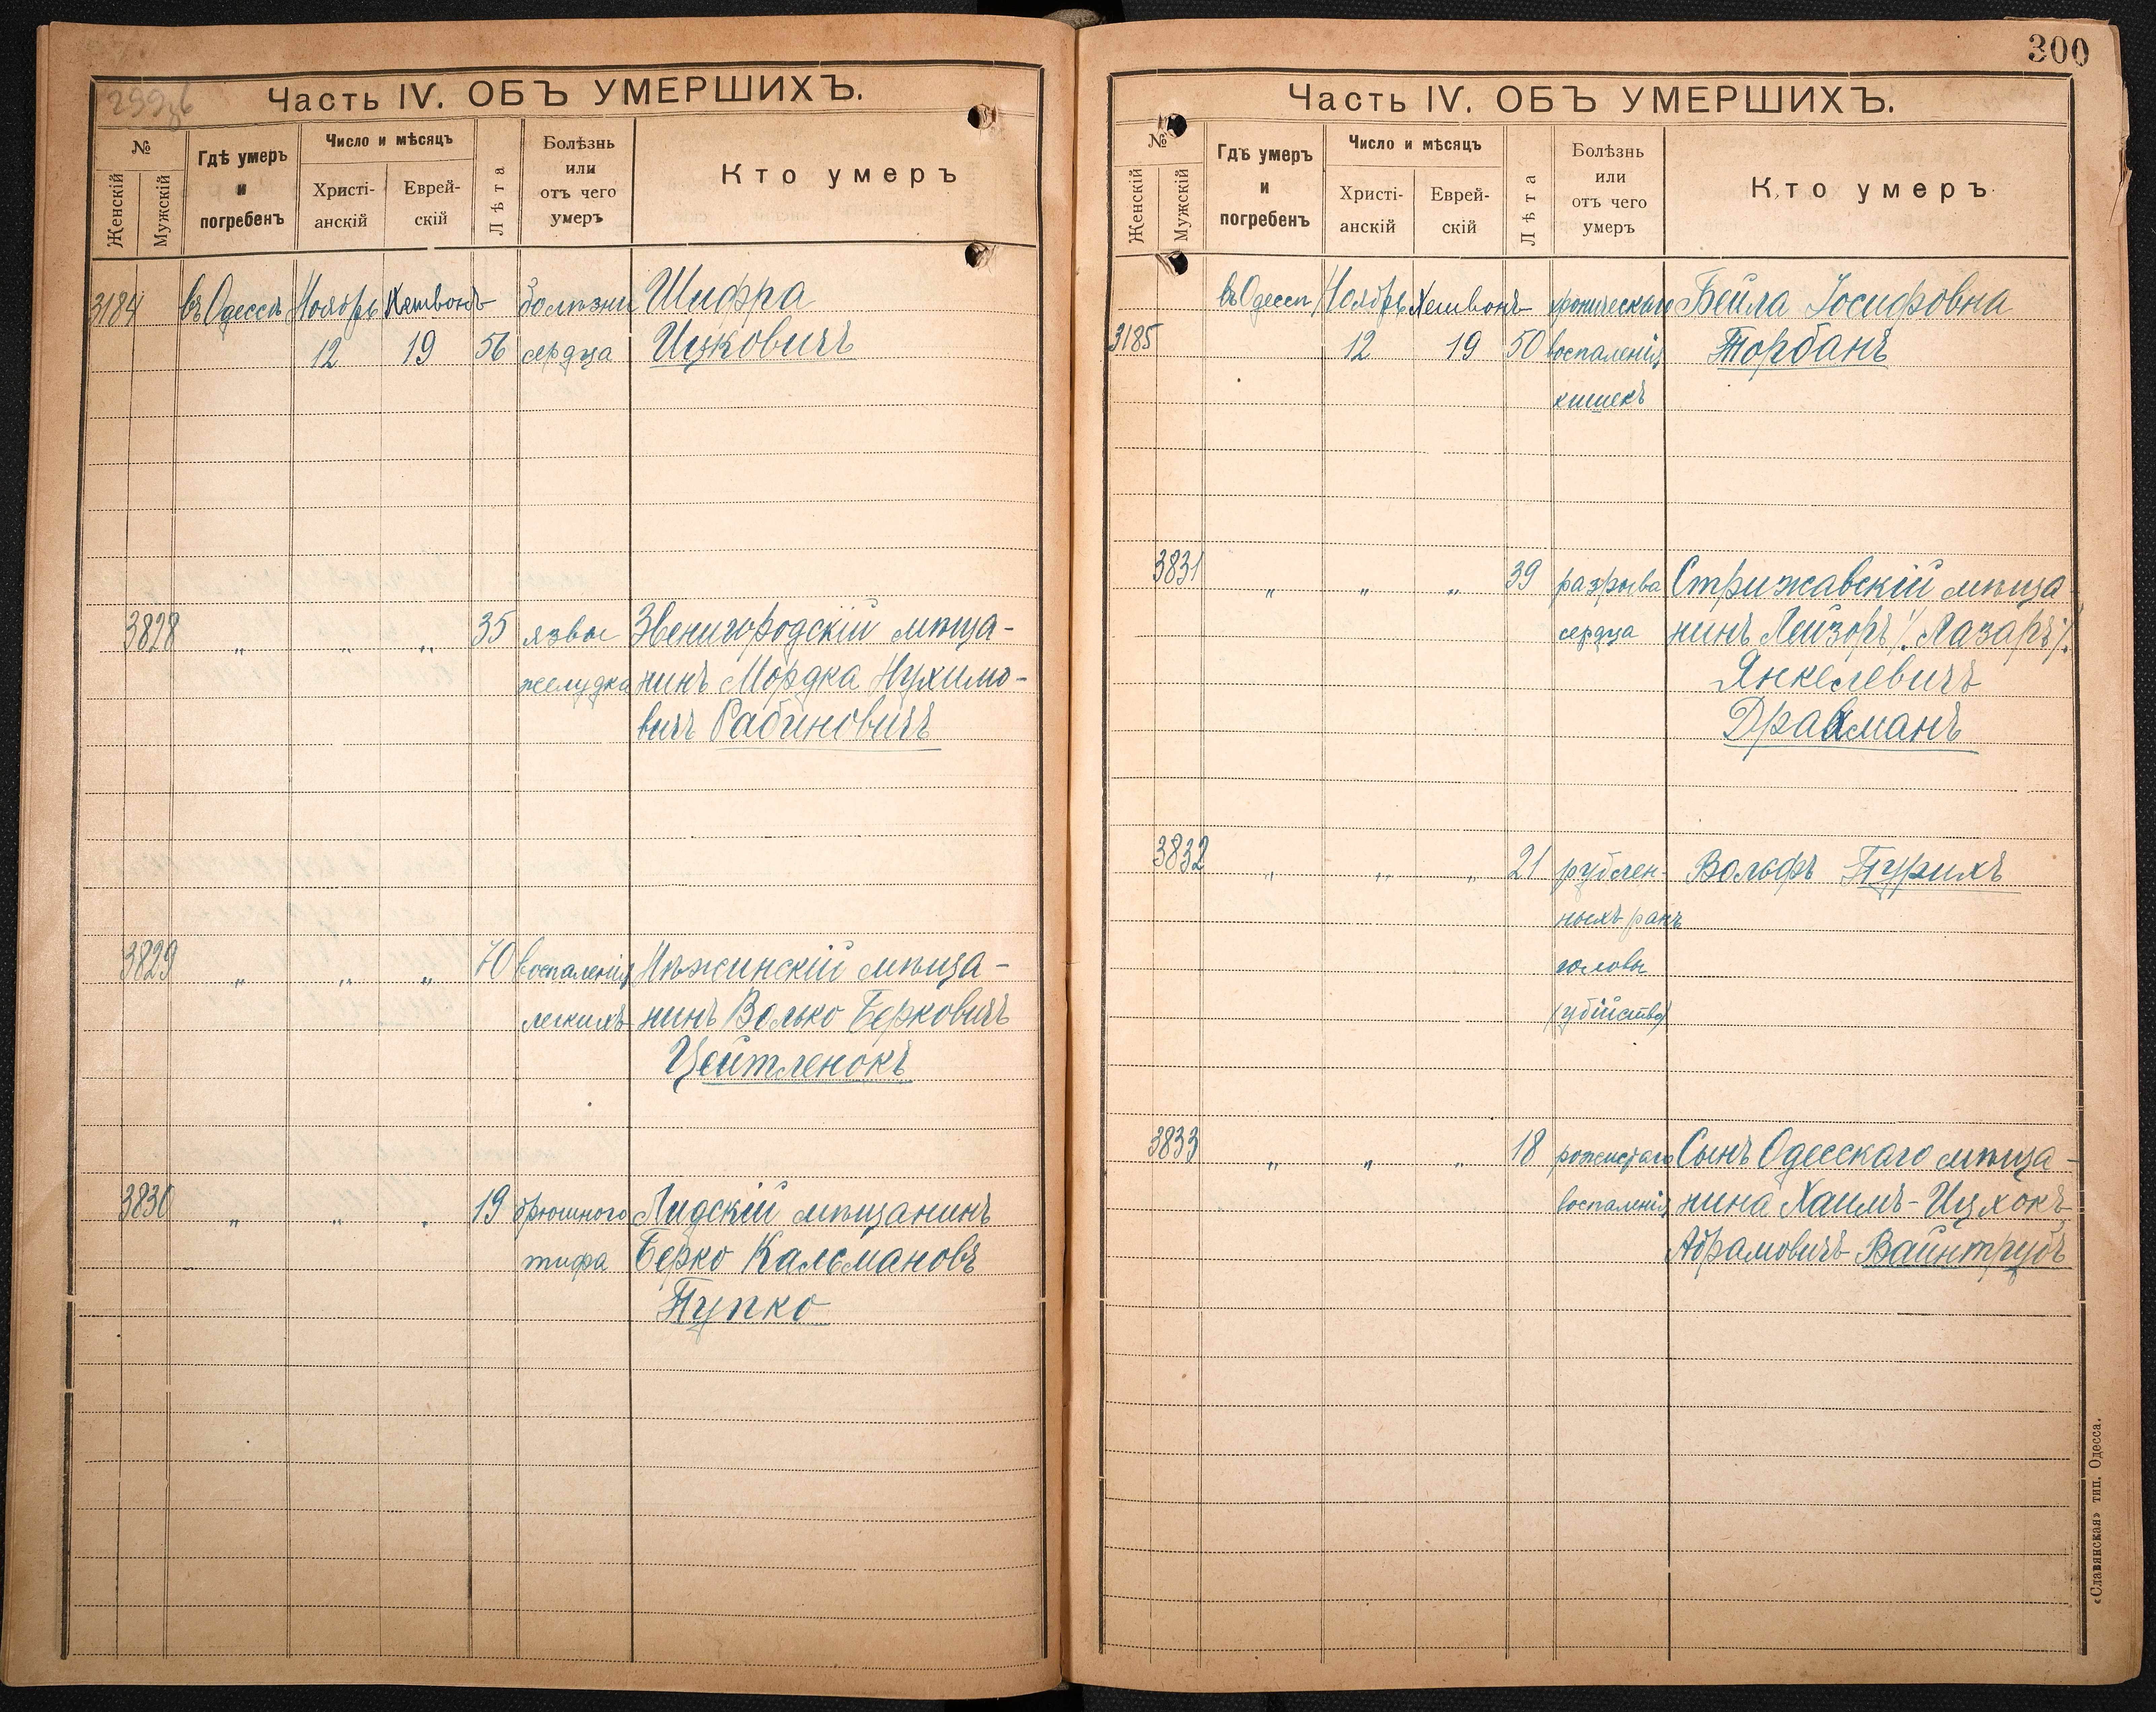 299об
Часть IV. ОБЪ УМЕРШИХЪ.
№
Женскій
Мужскій
Гдѣ умеръ и погребенъ
Число и мѣсяцъ
Христі-анскій
Еврей-скій
Лѣта
Болѣзнь или отъ чего умеръ
Кто умеръ
3184 въ Одессѣ Ноябрь Хешвонъ болѣзни Шифра
12 19 56 сердца Ицковичъ
3828 „ „ „ 35 язвы Звенигородскій мѣща-
желудка нинъ Мордка Нухимо-
вичъ Рабиновичъ
3829 „ „ „ 70 воспаленія Нѣжинскій мѣща-
легкихъ нинъ Волько Берковичъ
Цейтленокъ
3830 „ „ „ 19 брюшного Лидскій мѣщанинъ
тифа Берко Кальмановъ
Пупко
300
Часть IV. ОБЪ УМЕРШИХЪ.
№
Женскій
Мужскій
Гдѣ умеръ и погребенъ
Число и мѣсяцъ
Христі-анскій
Еврей-скій
Лѣта
Болѣзнь или отъ чего умеръ
Кто умеръ
въ Одессѣ Ноябрь Хешвонъ хроническаго Бейла Іосифовна
3185 12 19 50 воспаленія Торбанъ
кишекъ
3831 „ „ „ 39 разрыва Стрижавскій мѣща
сердца нинъ Лейзоръ /. Лазарь /.
Янкелевичъ
Драхманъ
3832 „ „ „ 21 рублен- Вольфъ Турихъ
ныхъ ранъ
головы
(убійство)
3833 „ „ „ 18 рожистаго Сынъ Одесскаго мѣща-
воспаленія нина Хаимъ-Ицхокъ
Абрамовичъ Вайнтрубъ
«Славянская» тип. Одесса.